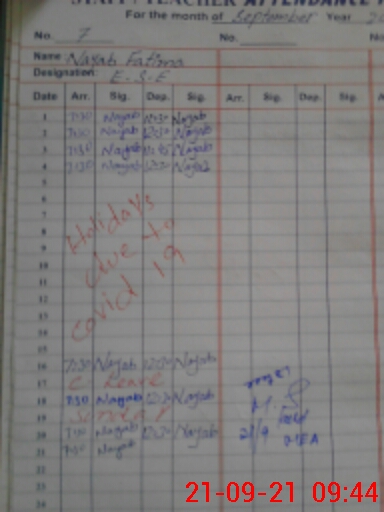 STAFF / TEACHER ATTENDANCE
For the month of September Year
No. 7 No.
Name Nayab Fatima
Designation: E.S.E
Date Arr. Sig. Dep. Sig. Arr. Sig. Dep. Sig.
1 7:30 Nayab 12:30 Nayab
2 7:30 Nayab 12:30 Nayab
3 7:30 Nayab Nayab
4 7:30 Nayab 12:30 Nayab
5
6
7
8
9
10
11
12
13
14
Holidays
due to
covid 19
15
16 7:30 Nayab 12:30 Nayab
17 C. Leave
18 7:30 Nayab 12:30 Nayab
19 Sunday
20 7:30 Nayab 12:30 Nayab
21 7:30 Nayab
22
23
24
21/9
MEA
21-09-21 09:44